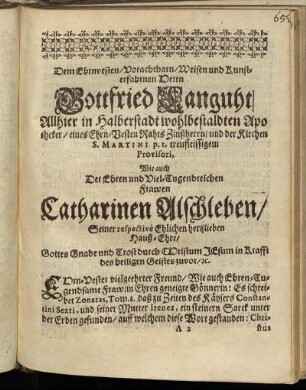 Dem Ehrnvesten/Vorachtbarn/Weisen und Kunst-
erfahrnen Herrn
Gottfried Languht/
Allhier in Halberstadt wohlbestaldten Apo
theker/ eines Ehrn-Vesten Rahts Zinßherrn/ und der Kirchen
S. MARTINI p. t. treufleissigem
Provisori,
Wie auch
Der Ehren und Viel-Tugendreichen
Frawen
Catharinen Alschleben/
Seiner respectivè Ehlichen hertzlieben
Hauß-Ehre/
Gottes Gnade und Trost durch Christum JEsum in Krafft
des heiligen Geistes zuvor/ꝛc.
EHrn-Vester vielgeehrter Freund/ Wie auch Ehren-Tu-
gendsame Fraw/ in Ehren geneigte Gönnerin: Es schrei-
bet Zonaras, Tom. daß zu Zeiten des Käysers Constan-
tini Sexti, und seiner Mutter Irenes, ein steinern Sarck unter
der Erden gefunden/ auff welchem diese Wort gestanden: Chri-
A 2
stus